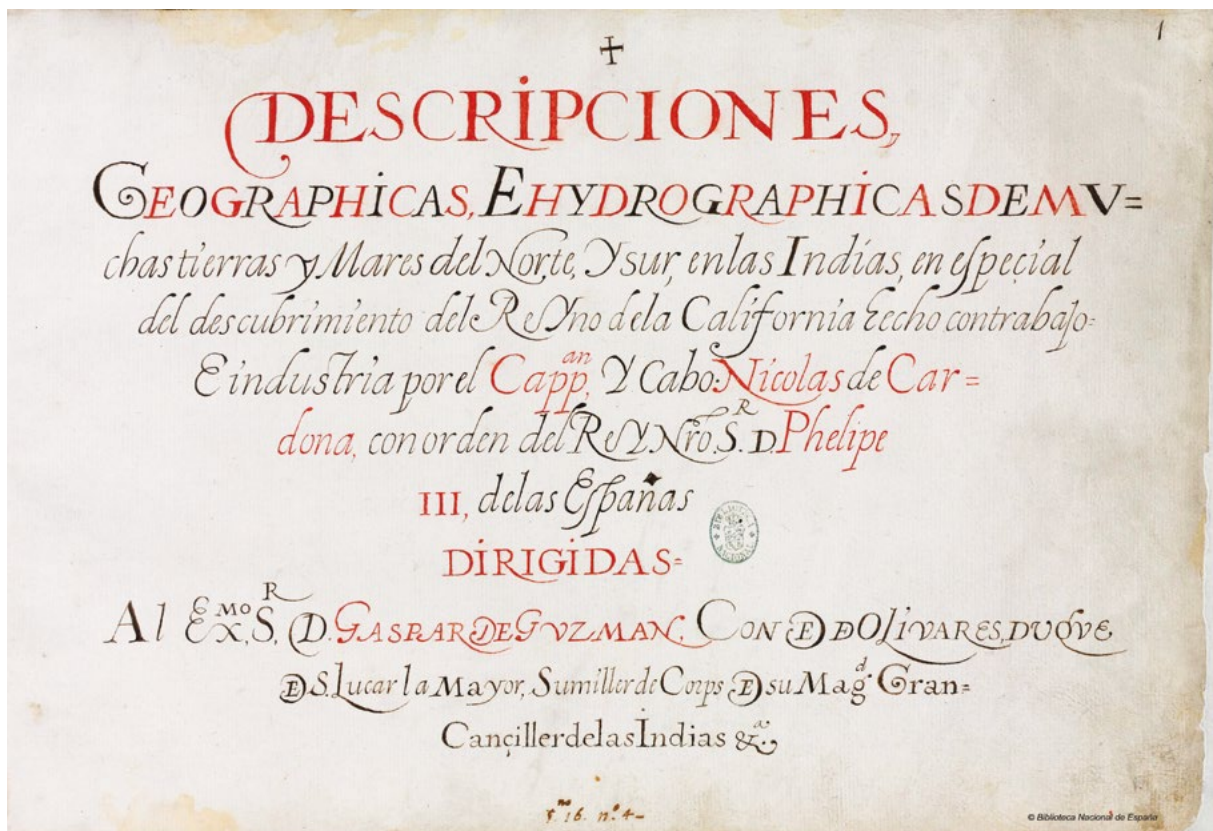 1
DESCRIPCIONES,
GEOGRAPHICAS, E HYDROGRAPHICAS DE MV=
chas tierras y Mares del Norte, Y sur, en las Indias, en especial
del descubrimiento del ReYno de la California hecho con trabajo=
E industria por el Capp.an Y Cabo: Nicolas de Car=
dona, con orden del ReY Nro. S.R D. Phelipe
III, de las Españas
DIRIGIDAS=
Al EX.MO S.R D. GASPAR DE GVZMAN, CONDE DE OLIVARES, DVQVE
DE S. Lucar la Mayor, Sumiller de Corps DE su Mag.d Gran=
Cançiller de las Indias &.a
nº 4
© Biblioteca Nacional de España